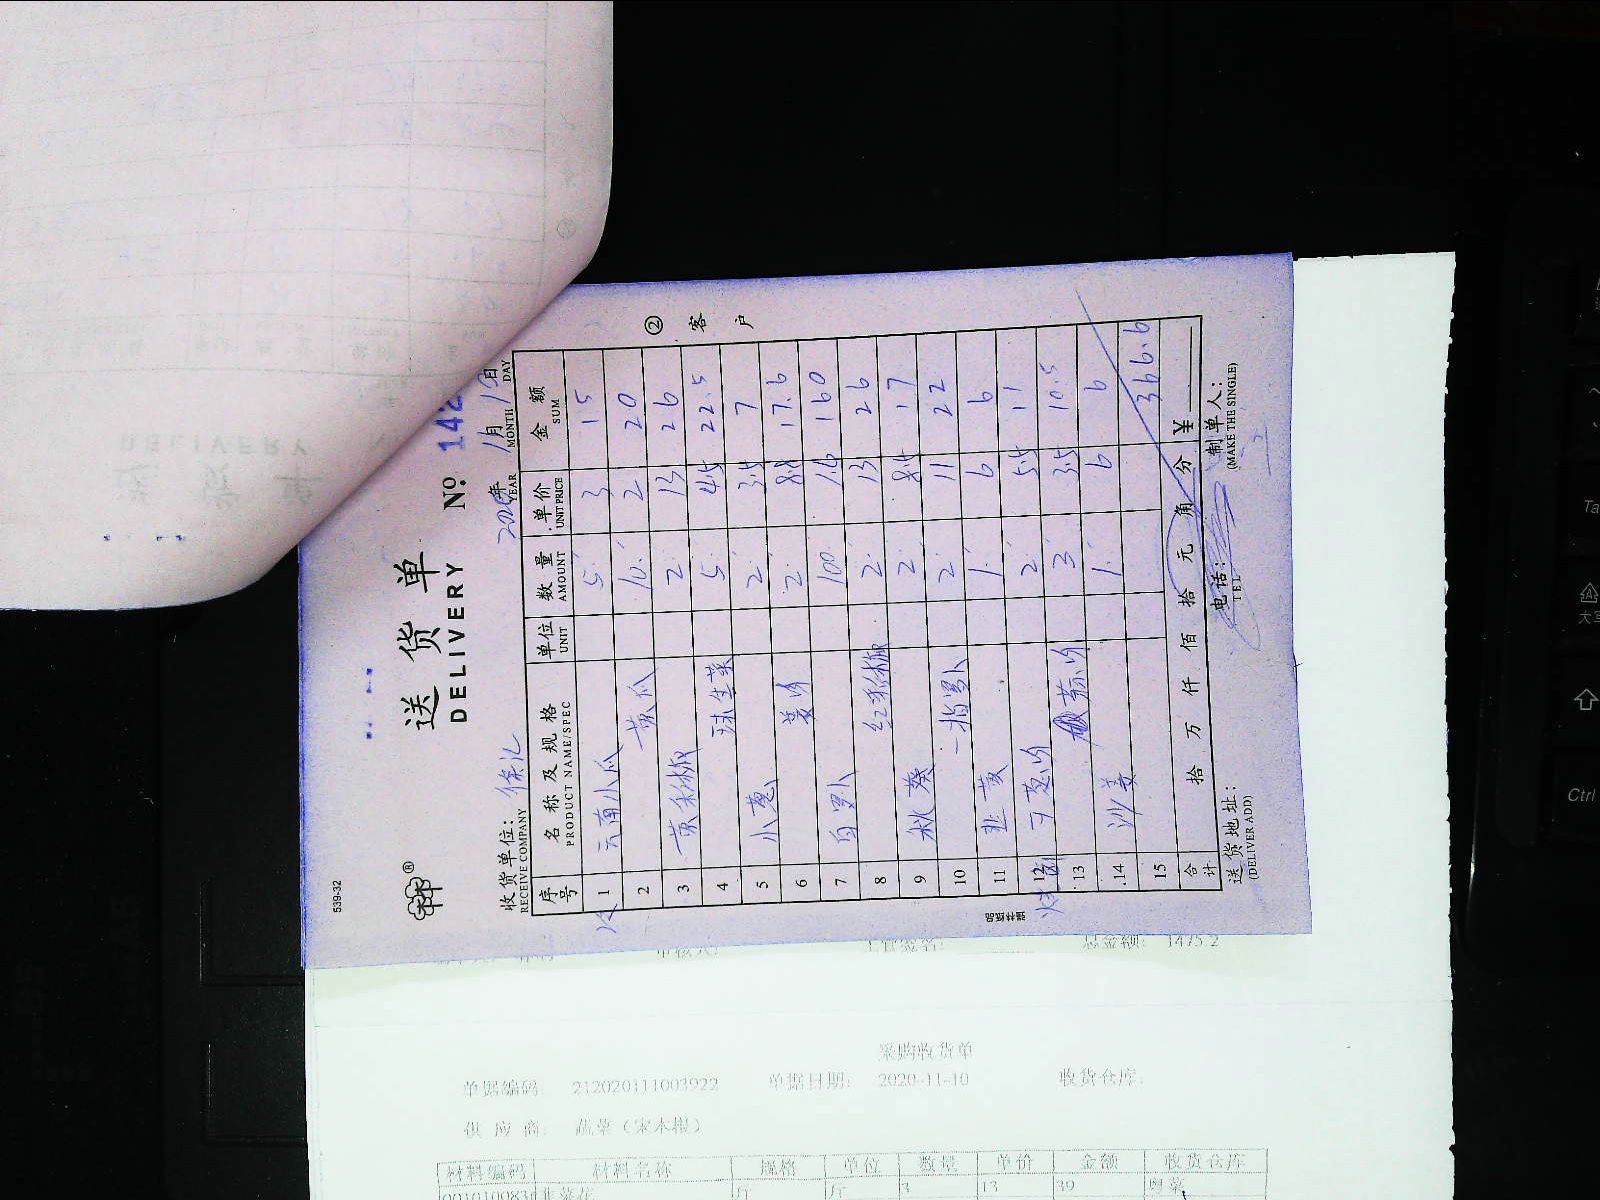 539-32
送 货 单
DELIVERY
№: 142
收货单位: 徐汇
RECEIVE COMPANY
年 YEAR 11月 MONTH 日 DAY
序号 名称及规格 PRODUCT NAME/SPEC 单位 UNIT 数量 AMOUNT 单价 UNIT PRICE 金额 SUM
1 云南小瓜 5 3 15
2 黄瓜 10 2 20
3 黄彩椒 2 13 26
4 球生菜 5 4.5 22.5
5 小葱 2 3.5 7
6 姜 2 8.8 17.6
7 白罗卜 100 1.6 160
8 红彩椒 2 13 26
9 秋葵 2 8.5 17
10 一指罗卜 2 11 22
11 韭黄 1 6 6
12 2 5.5 11
13 3 3.5 10.5
14 沙姜 1 6 6
15 366.6
合计 拾 万 仟 佰 拾 元 角 分 ¥
送货地址:
(DELIVER ADD)
电话:
TEL
制单人:
(MAKE THE SINGLE)
② 客户
总金额: 1475.2
采购收货单
单据编码: 212020111003922 单据日期: 2020-11-10 收货仓库:
供 应 商: 蔬菜(宋本根)
材料编码 材料名称 规格 单位 数量 单价 金额 收货仓库
韭菜花 斤 斤 3 13 39 粤菜
Ctrl